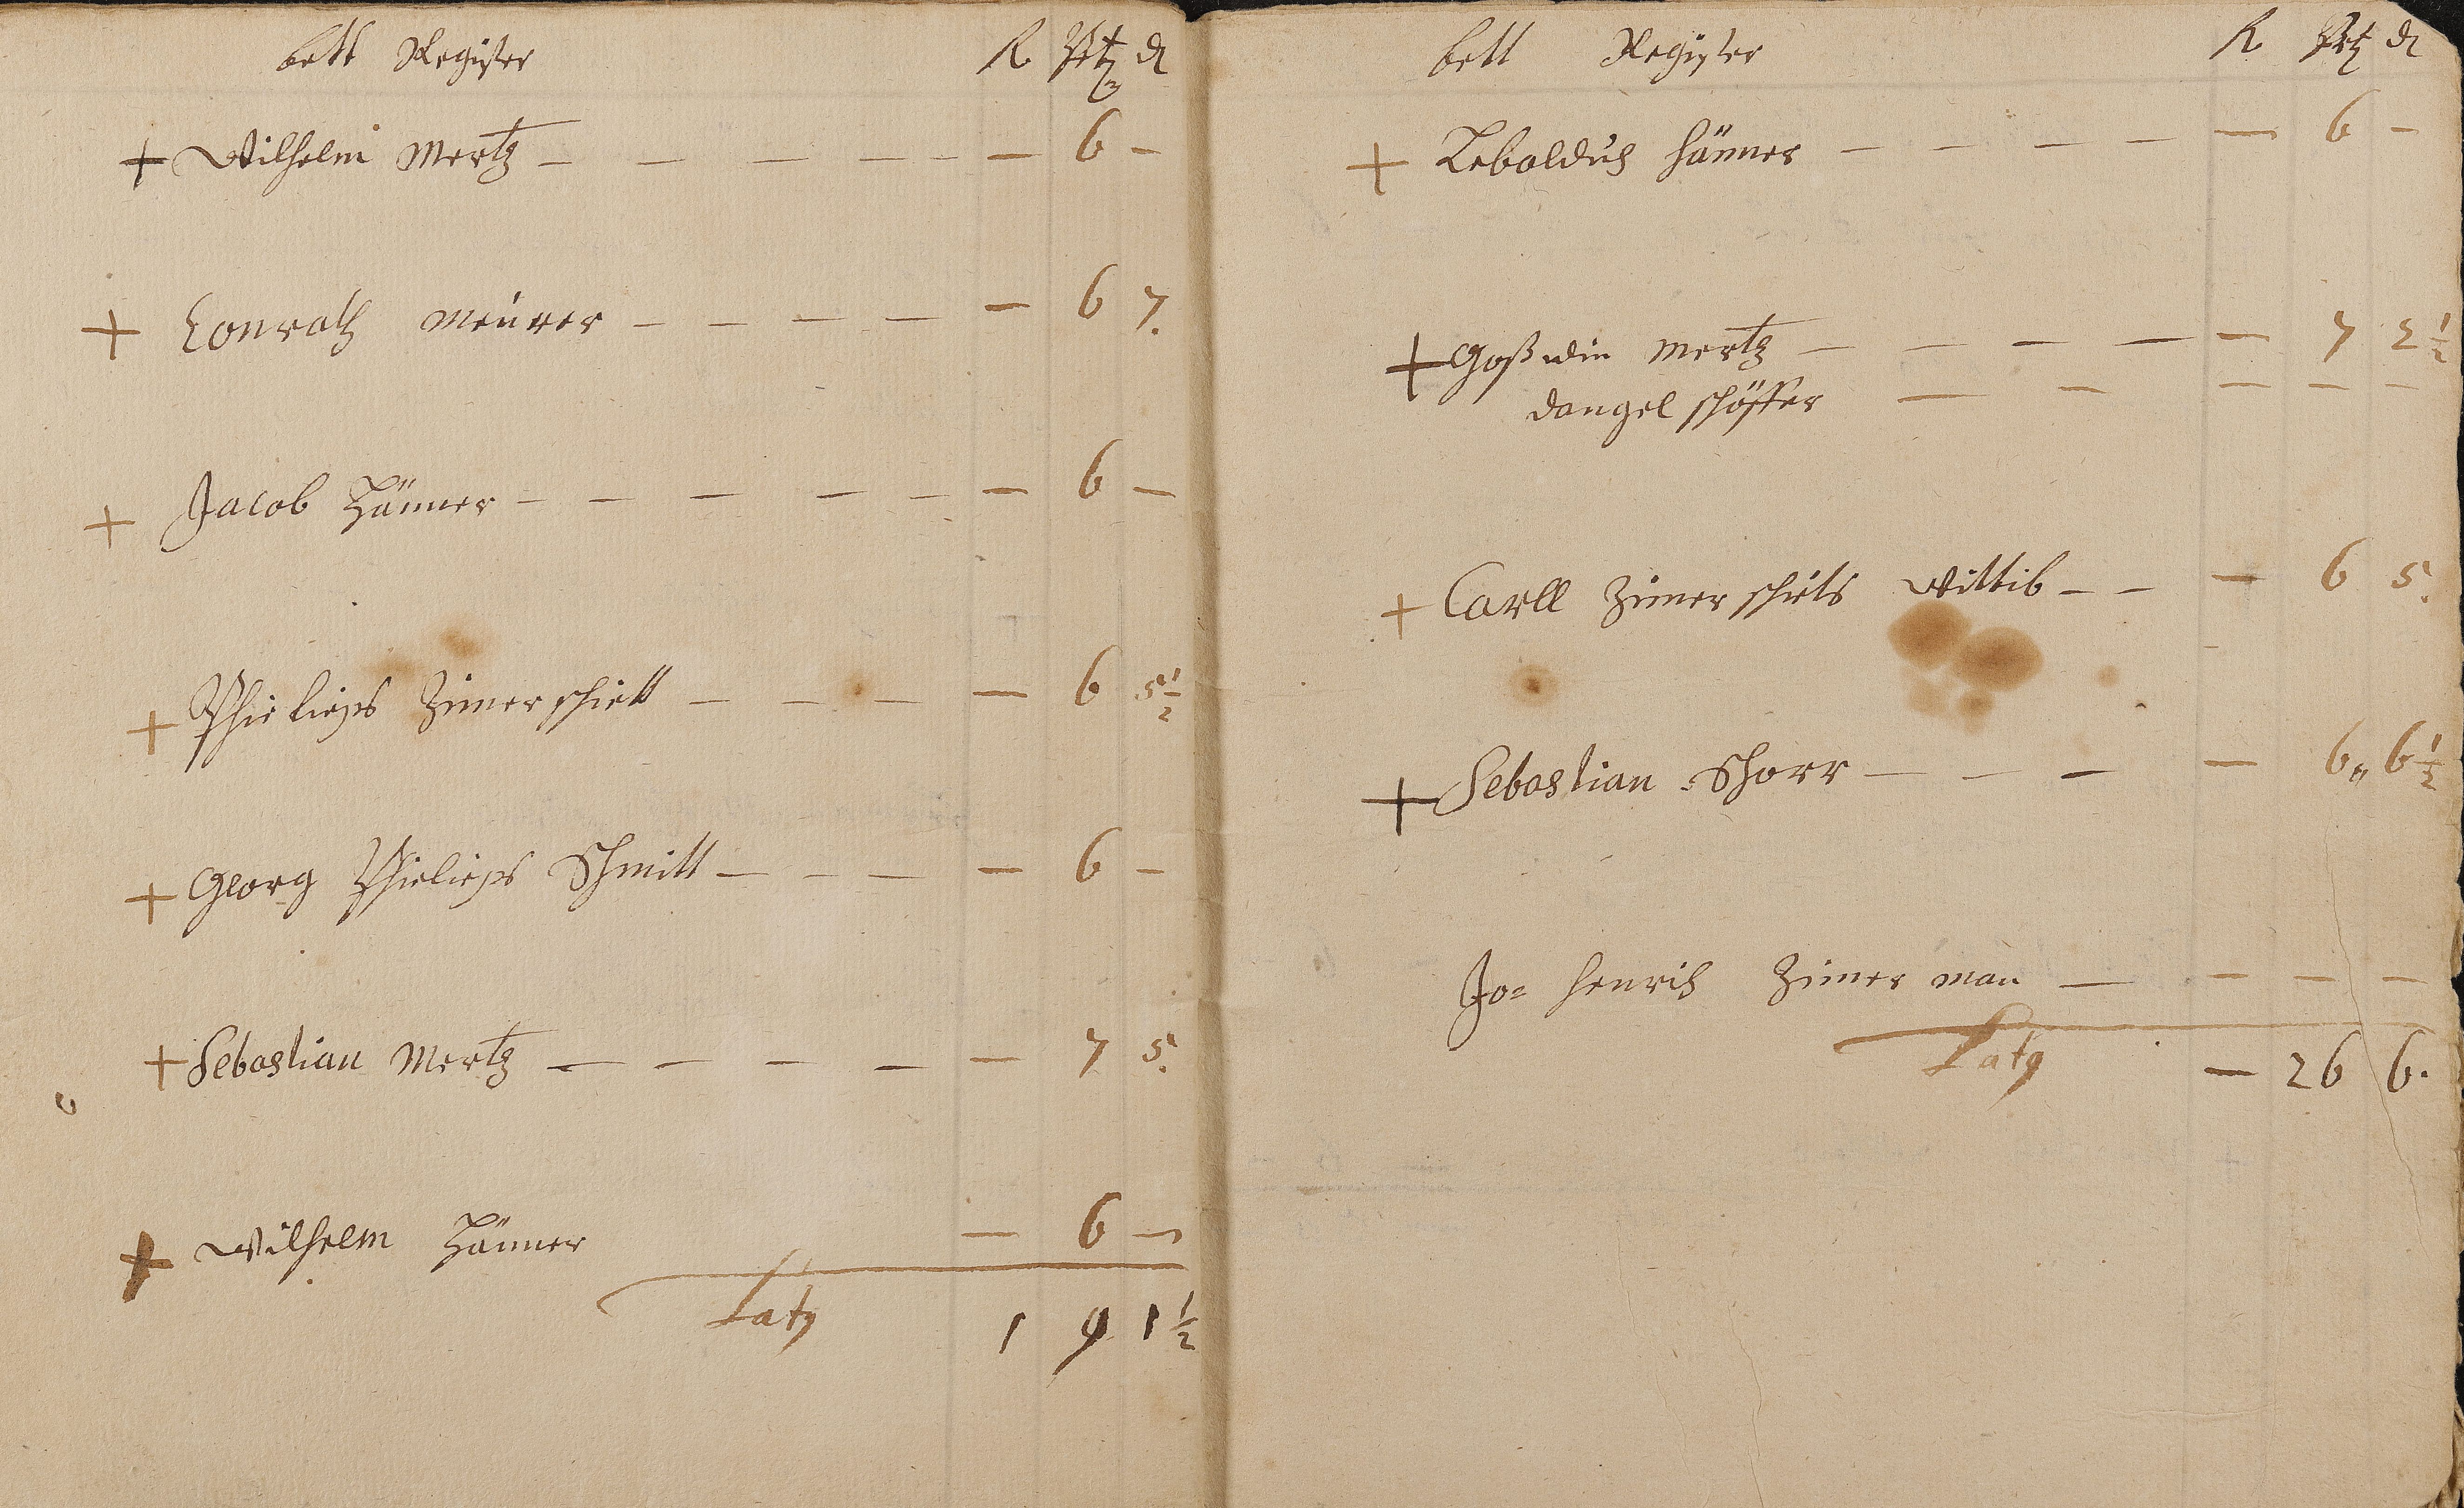 bett Register R Ptz d
+ Wilhelm Mertz — — — — — — 6 —
+ Conrath Meürer — — — — — 6 7.
+ Jacob Hänner — — — — — — 6 —
+ Phieliejps Zimerschiett — — — — 6 5 1/2
+ Georg Phieliejps Schmitt — — — — 6 —
+ Sebastian Mertz — — — — — 7 5.
+ Wilhelm Hänner — 6 —
Latg 1 9 1 1/2
bett Register R Ptz d
+ Leboldüs Hänner — — — — — 6 —
+ Goßwin Mertz — — — — — 7 2 1/2
dangel schöffer — — — — —
+ Carll Zimerschiets Wittib — — — 6 5.
+ Sebastian Schorr — — — — 6 6 1/2
Jo= Henrich Zimer man — — — —
Latg — 26 6.